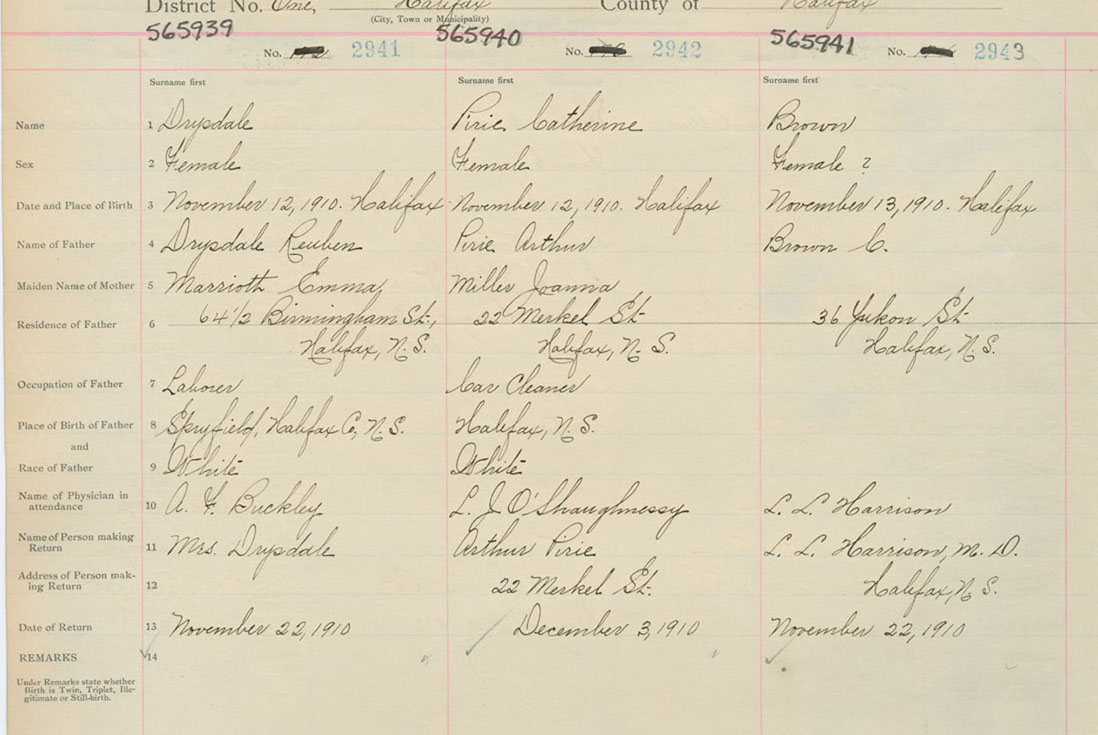 District No. One, Halifax County of Halifax
(City, Town or Municipality)
565939 565940 565941
No. 2941 No. 2942 No. 2943
Surname first Surname first Surname first
Name 1 Drysdale Pirie Catherine Brown
Sex 2 Female Female Female ?
Date and Place of Birth 3 November 12, 1910. Halifax November 12, 1910. Halifax November 13, 1910. Halifax
Name of Father 4 Drysdale Reuben Pirie Arthur Brown C.
Maiden Name of Mother 5 Marrioth Emma, Miller Joanna
Residence of Father 6 64 1/2 Birmingham St., 22 Merkel St. 36 Yukon St.
Halifax, N.S. Halifax, N.S. Halifax, N.S.
Occupation of Father 7 Laborer Car Cleaner
Place of Birth of Father 8 Spryfield, Halifax Co, N.S. Halifax, N.S.
and
Race of Father 9 White White
Name of Physician in
attendance 10 A. F. Buckley L. J. O'Shaughnessy L. L. Harrison
Name of Person making
Return 11 Mrs. Drysdale Arthur Pirie L. L. Harrison, M.D.
Address of Person mak-
ing Return 12 22 Merkel St. Halifax, N.S.
Date of Return 13 November 22, 1910 December 3, 1910 November 22, 1910
REMARKS 14
Under Remarks state whether
Birth is Twin, Triplet, Ille-
gitimate or Still-birth.